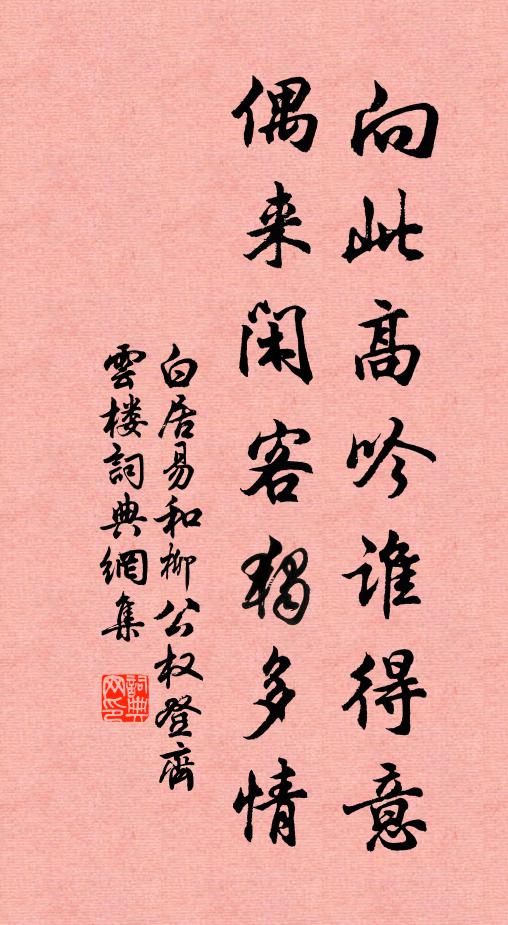 向此高吟谁得意
偶来闲客獨多情
白居易和柳公权登齊
雲楼詞典網集
詞典网印